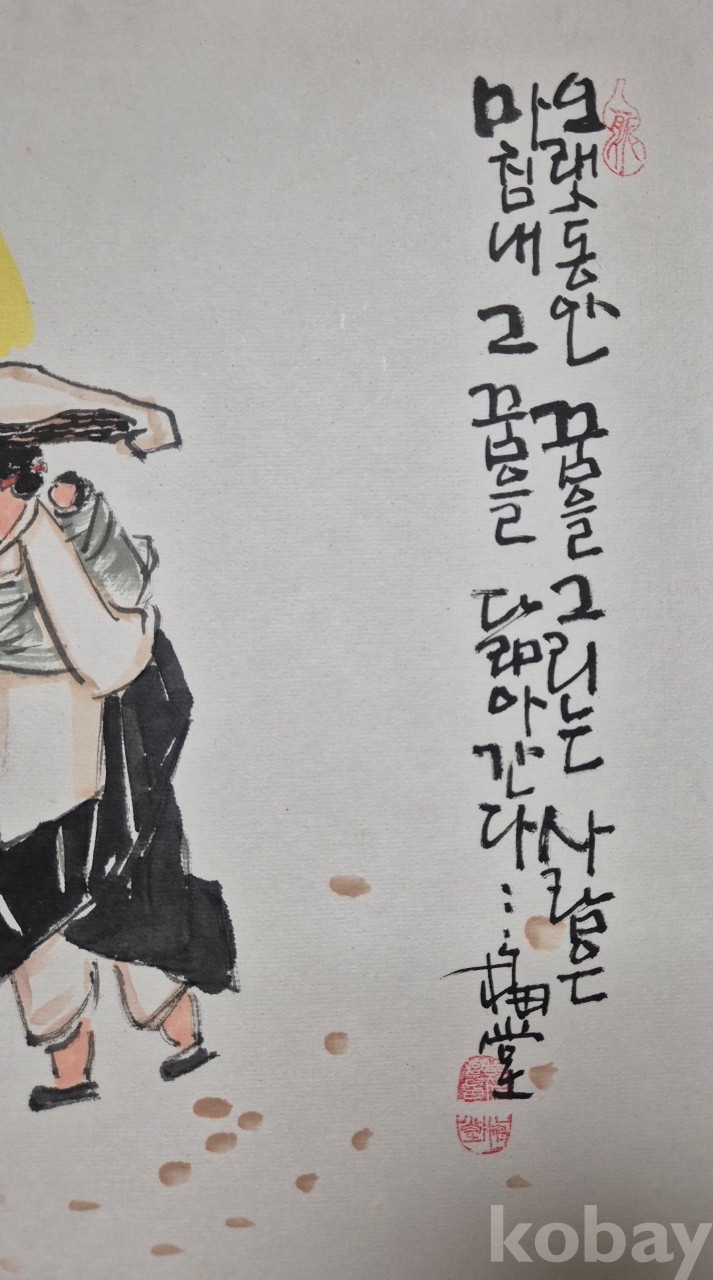 오랫동안 꿈을 그리는 사람은
마침내 그 꿈을 닮아간다...
梅堂
kobay